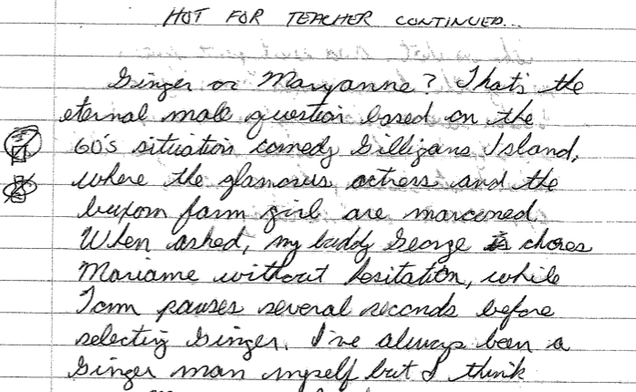 HOT FOR TEACHER CONTINUED...
Ginger or Maryanne? That's the
eternal male question based on the
60's situation comedy Gilligans Island,
where the glamorus actress and the
buxom farm girl are marooned.
When asked, my buddy George choses
Mariame without hesitation, while
Tom pauses several seconds before
selecting Ginger. I've always been a
Ginger man myself but I think